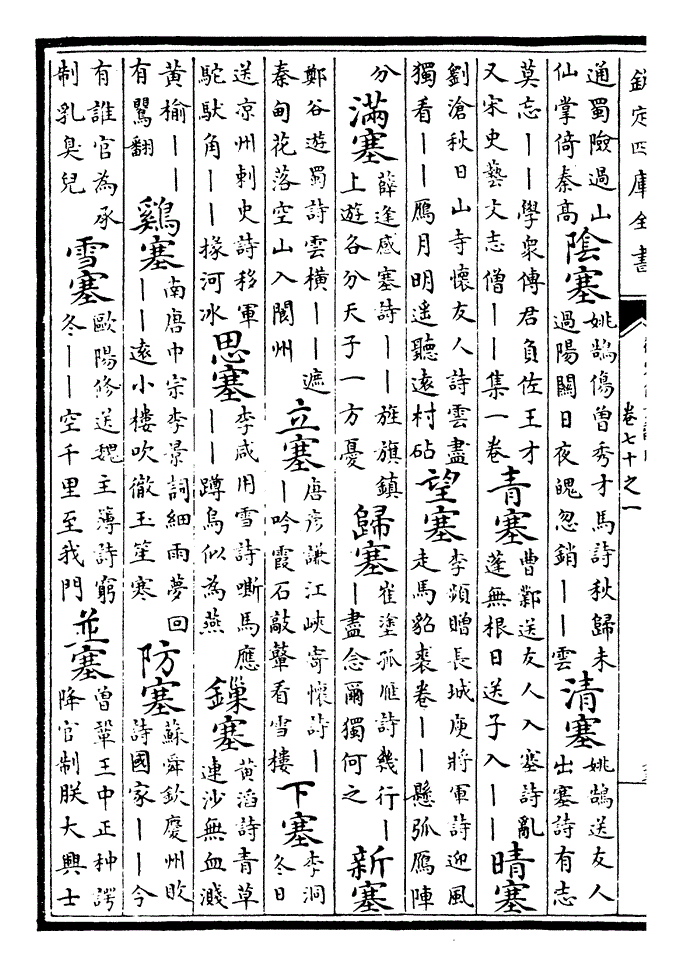 欽定四庫全書
卷七十之一
通蜀險過山
仙掌倚秦高
陰塞
姚鵠傷曾秀才馬詩秋歸未
過陽關日夜魄忽銷丨丨雲
清塞
姚鵠送友人
出塞詩有志
莫忘丨丨學衆傳君負佐王才
又宋史藝文志僧丨丨集一卷
青塞
曹鄴送友人入塞詩亂
蓬無根日送子入丨丨
晴塞
劉滄秋日山寺懷友人詩雲盡
獨看丨丨鴈月明遥聽遠村砧
望塞
李頻贈長城庾將軍詩迎風
走馬貂裘卷丨丨懸弧鴈陣
分
滿塞
薛逢感塞詩丨丨旌旗鎮
上遊各分天子一方憂
歸塞
崔塗孤雁詩幾行丨
丨盡念爾獨何之
新塞
鄭谷遊蜀詩雲橫丨丨遮
秦甸花落空山入閬州
立塞
唐彥謙江峽寄懷詩丨
丨吟霞石敲鼙看雪樓
下塞
李洞
冬日
送凉州刺史詩移軍
駝馱角丨丨掾河冰
思塞
李咸用雪詩嘶馬應
丨丨蹲烏似為燕
鏁塞
黃滔詩青草
連沙無血濺
黃榆丨丨
有鸎翻
鷄塞
南唐中宗李景詞細雨夢回
丨丨遠小樓吹徹玉笙寒
防塞
蘇舜欽慶州敗
詩國家丨丨今
有誰官為承
制乳臭兒
雪塞
歐陽修送魏主簿詩窮
冬丨丨空千里至我門
並塞
曾鞏王中正种諤
降官制朕大興士